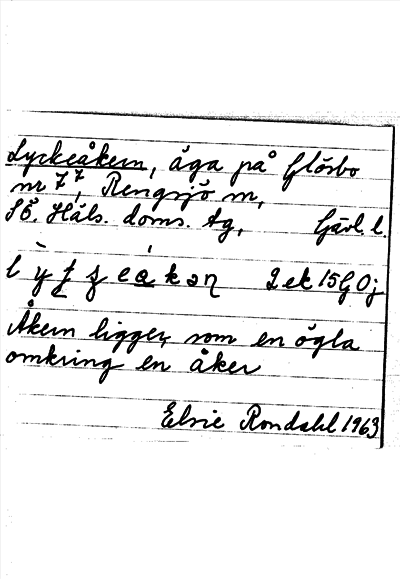 Lyckeåkern, äga på Glösbo
nr 7⁷, Rengsjö sn,
SÖ. Häls. doms. tg, Gävl. l.
Q ek 15G 0j
Åkern ligger, som en ögla
omkring en åker
Elsie Rondahl 1963